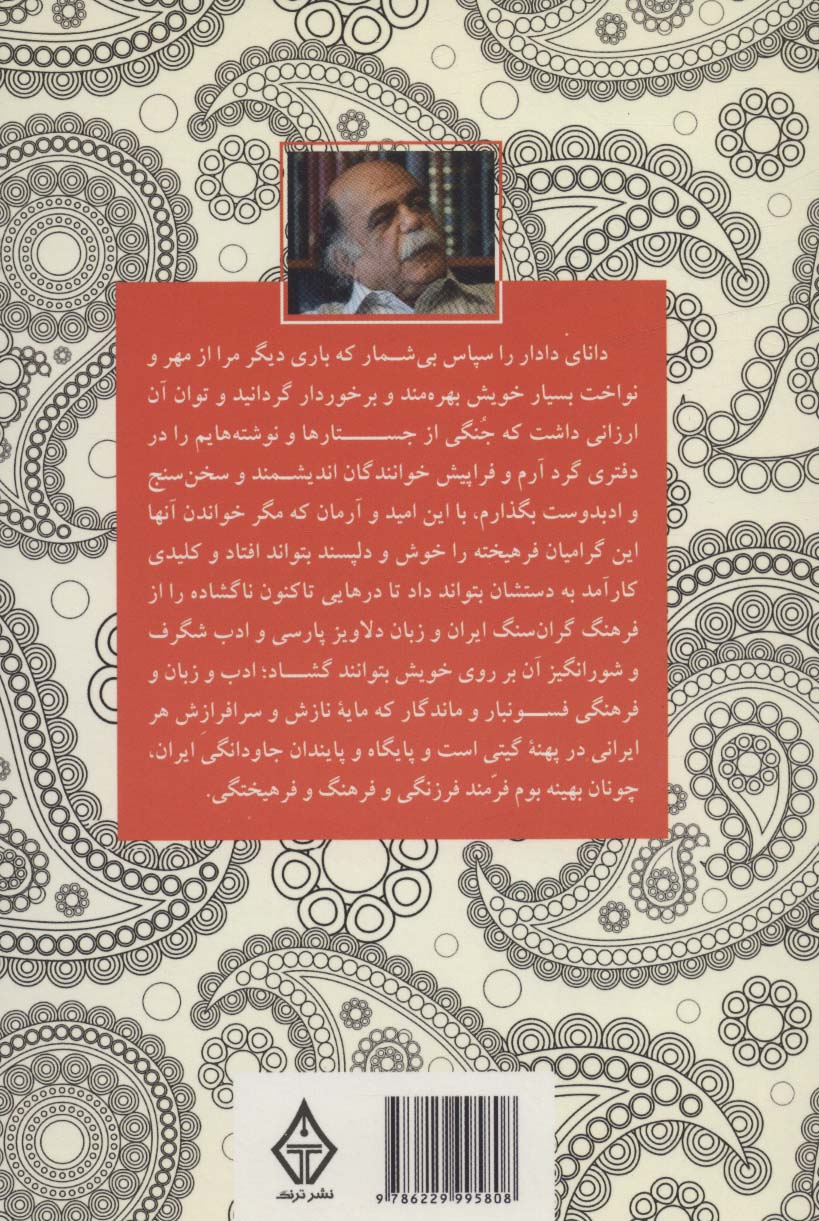 دانایِ دادار را سپاس بی‌شمار که باری دیگر مرا از مهر و
نواخت بسیار خویش بهره‌مند و برخوردار گردانید و توان آن
ارزانی داشت که جُنگی از جستارها و نوشته‌هایم را در
دفتری گرد آرم و فراپیش خوانندگان اندیشمند و سخن‌سنج
و ادبدوست بگذارم، با این امید و آرمان که مگر خواندن آنها
این گرامیان فرهیخته را خوش و دلپسند بتواند افتاد و کلیدی
کارآمد به دستشان بتواند داد تا درهایی تاکنون ناگشاده را از
فرهنگ گران‌سنگ ایران و زبان دلاویز پارسی و ادب شگرف
و شورانگیز آن بر روی خویش بتوانند گشاد؛ ادب و زبان و
فرهنگی فسونبار و ماندگار که مایهٔ نازش و سرافرازش هر
ایرانی در پهنهٔ گیتی است و پایگاه و پایندان جاودانگیِ ایران،
چونان بهینه بوم فرّمند فرزنگی و فرهنگ و فرهیختگی.
نشر ترنگ
9 786229 995808